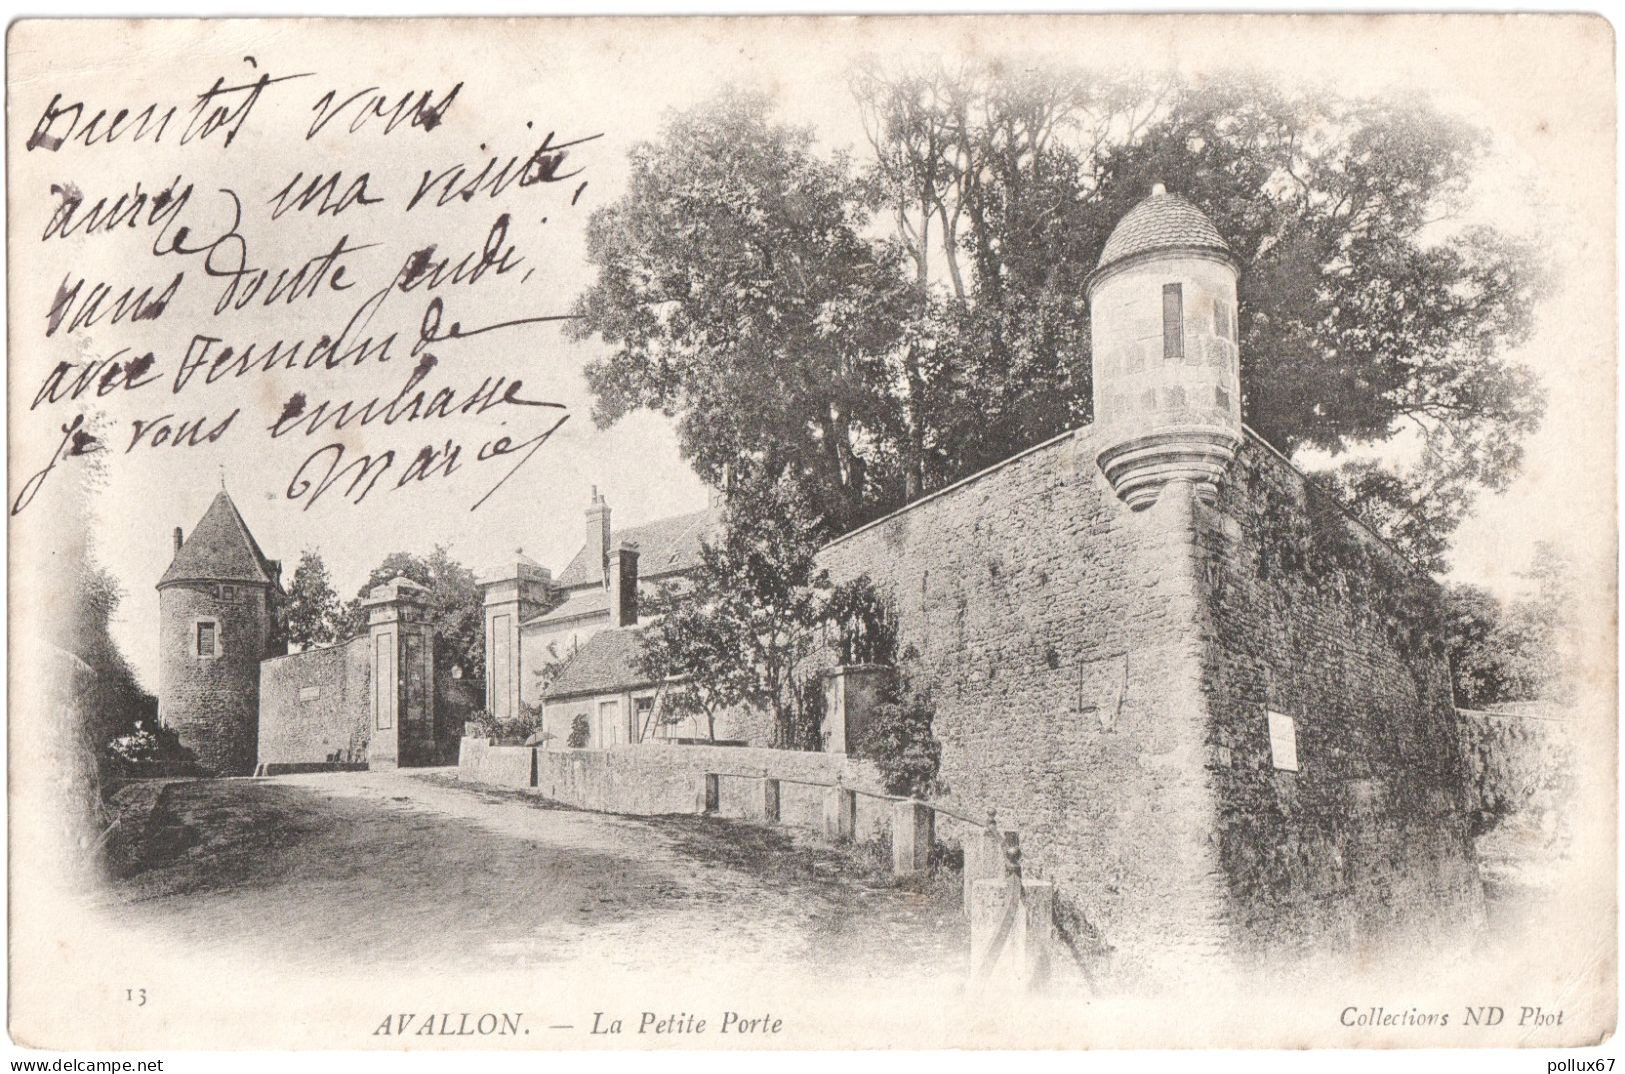 Bientôt vous
aurez ma visite,
sans doute jeudi,
avec Fernande
je vous embrasse
Marie
13
AVALLON. — La Petite Porte
Collections ND Phot
pollux67